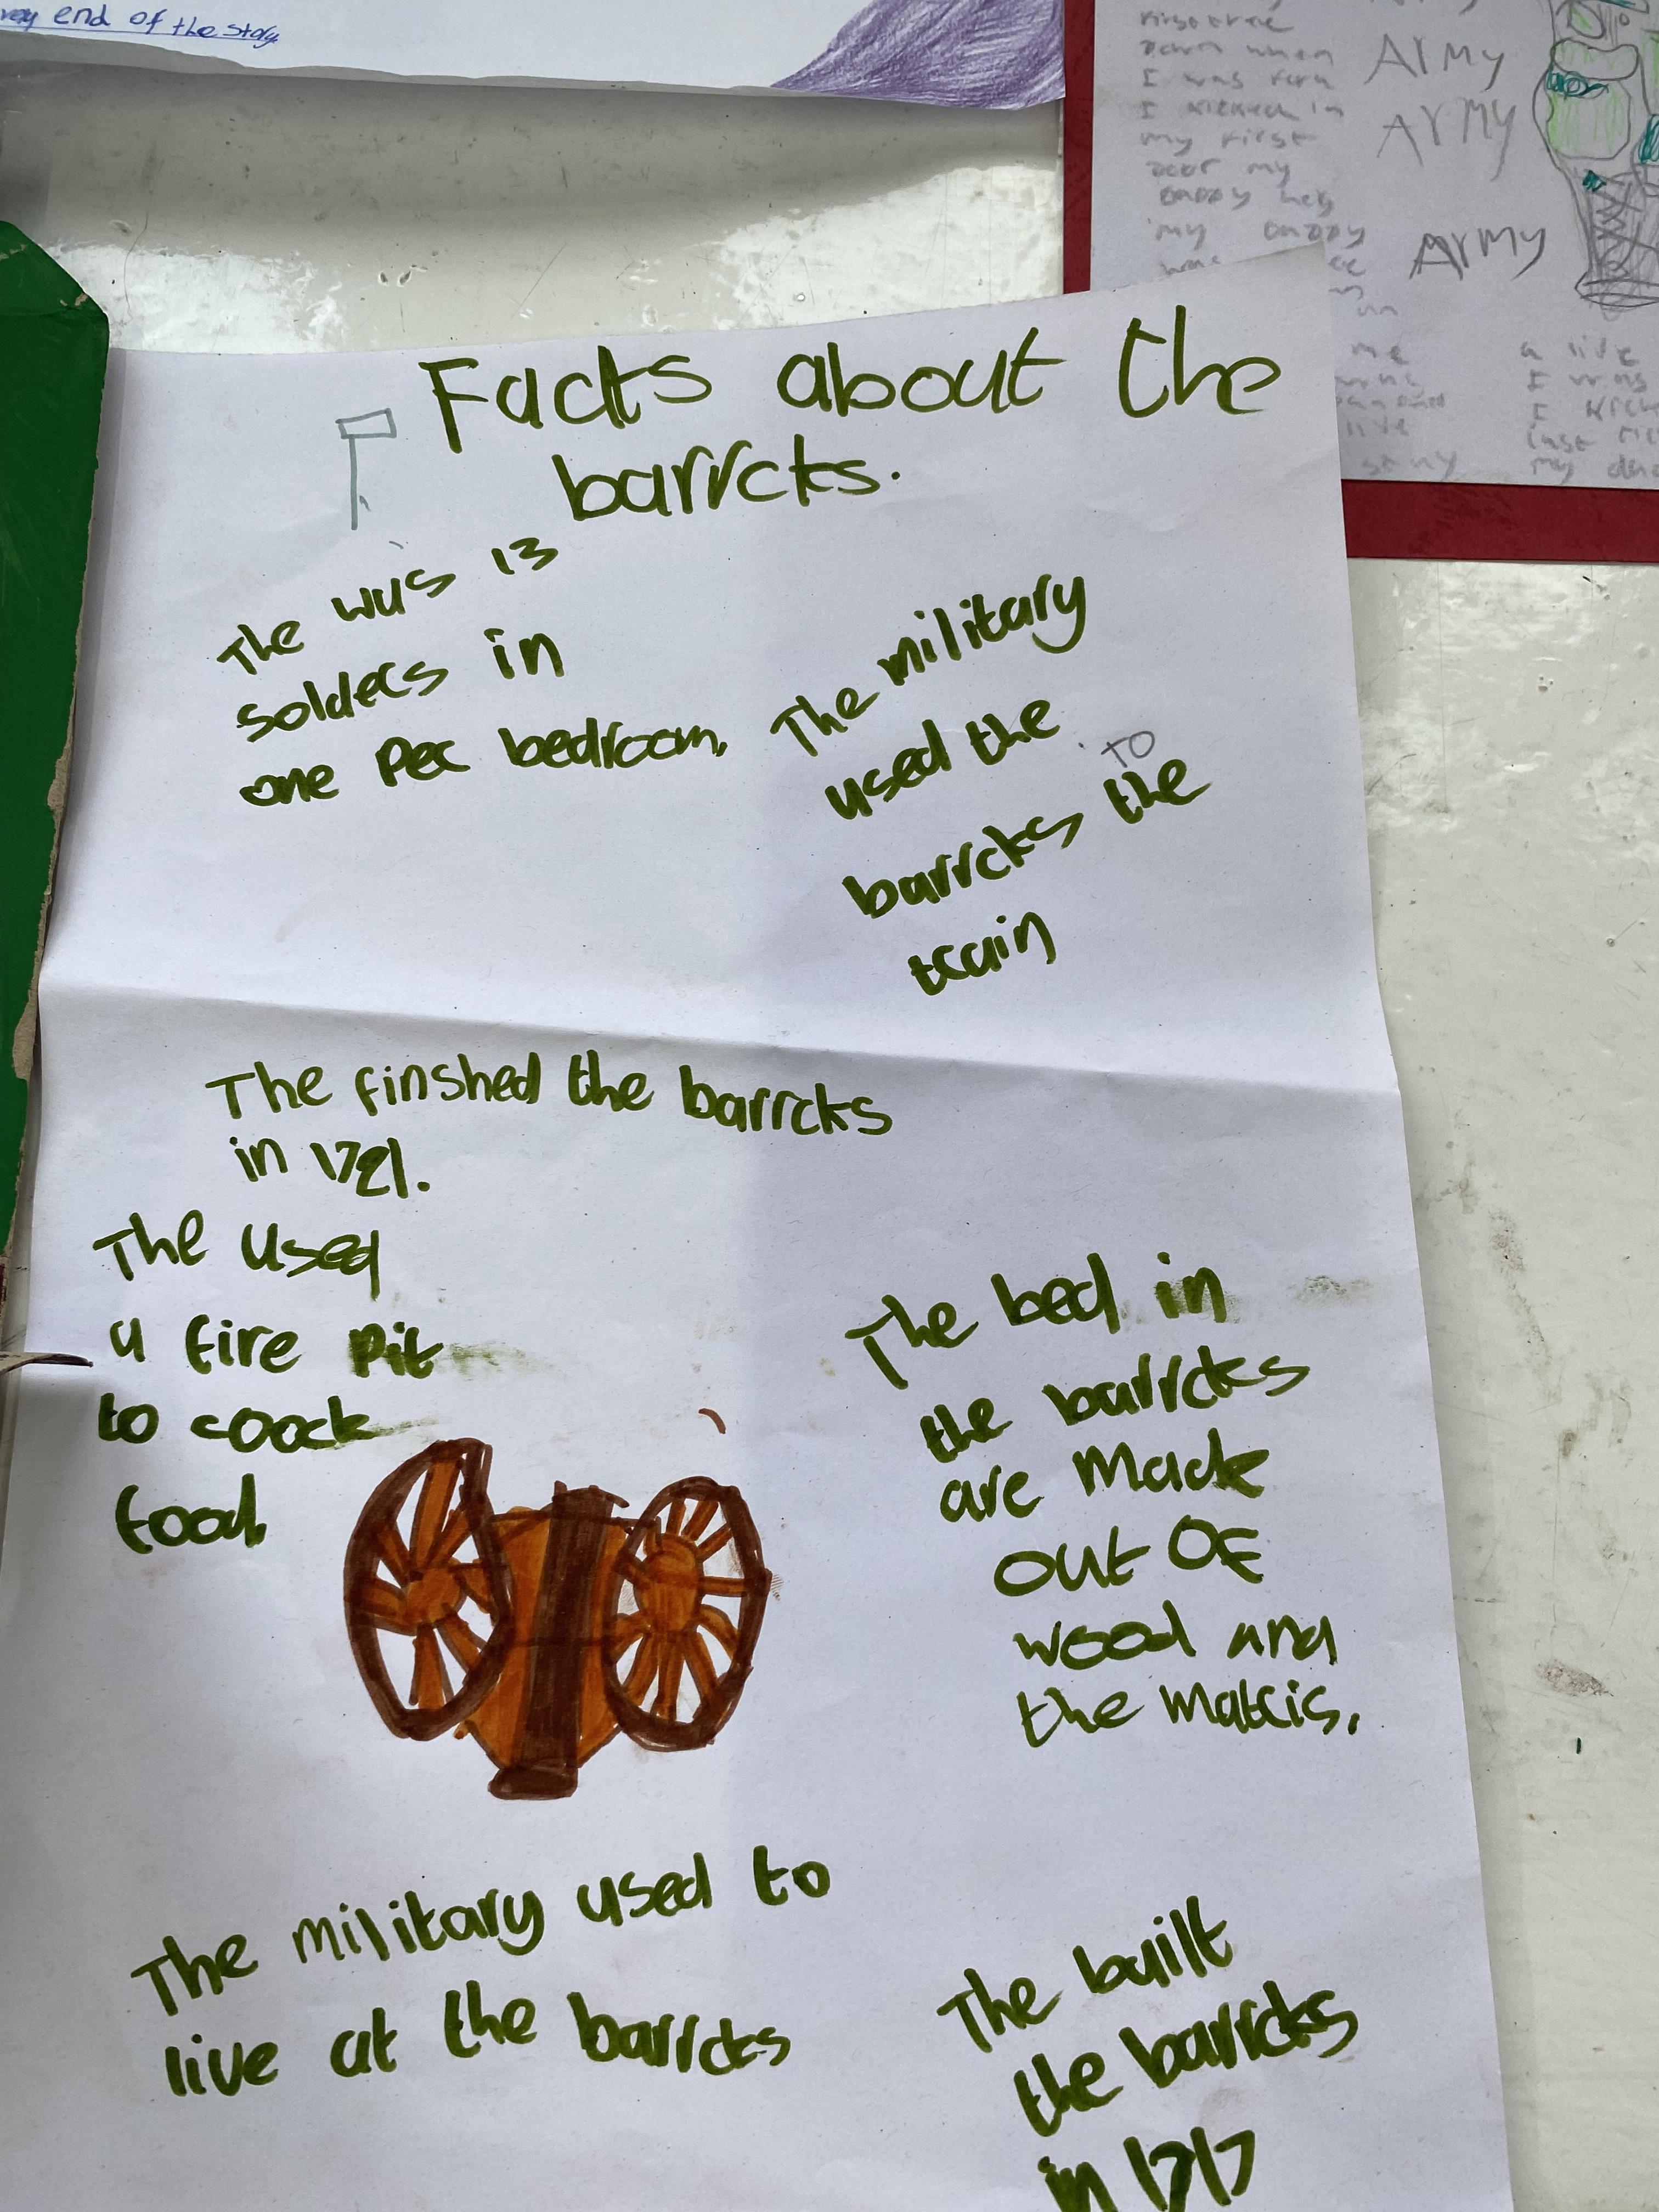 end of the story
Army
Army
Army
down when
I was
I kicked in
my first
door my
my
a live
I was
my
Facts about the
barrcks.
The wus 13
solders in
one Per bedroom.
The military
used the
to
barrcks the
train
The finshed the barrcks
in 1721.
The used
a fire pit
to coock
food.
The bed in
the barrcks
are made
out of
wood and
the matris.
The military used to
live at the barrcks
The built
the barrcks
in 1717